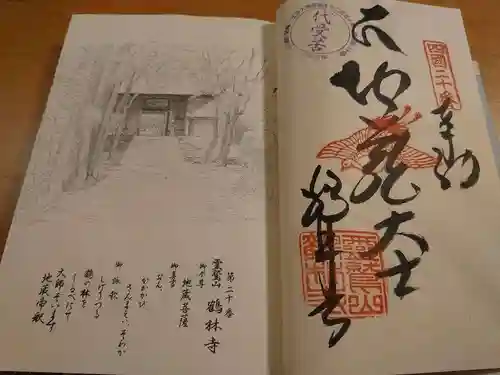 四国二十番
奉納
代受苦
地蔵大士
鶴林寺
第二十番
靈鷲山 鶴林寺
御本尊 地蔵菩薩
御真言
おん
かかかび
さんまえい そわか
御詠歌
しげりつる
鶴の林を
しるべにて
大師ぞいます
地蔵帝釈